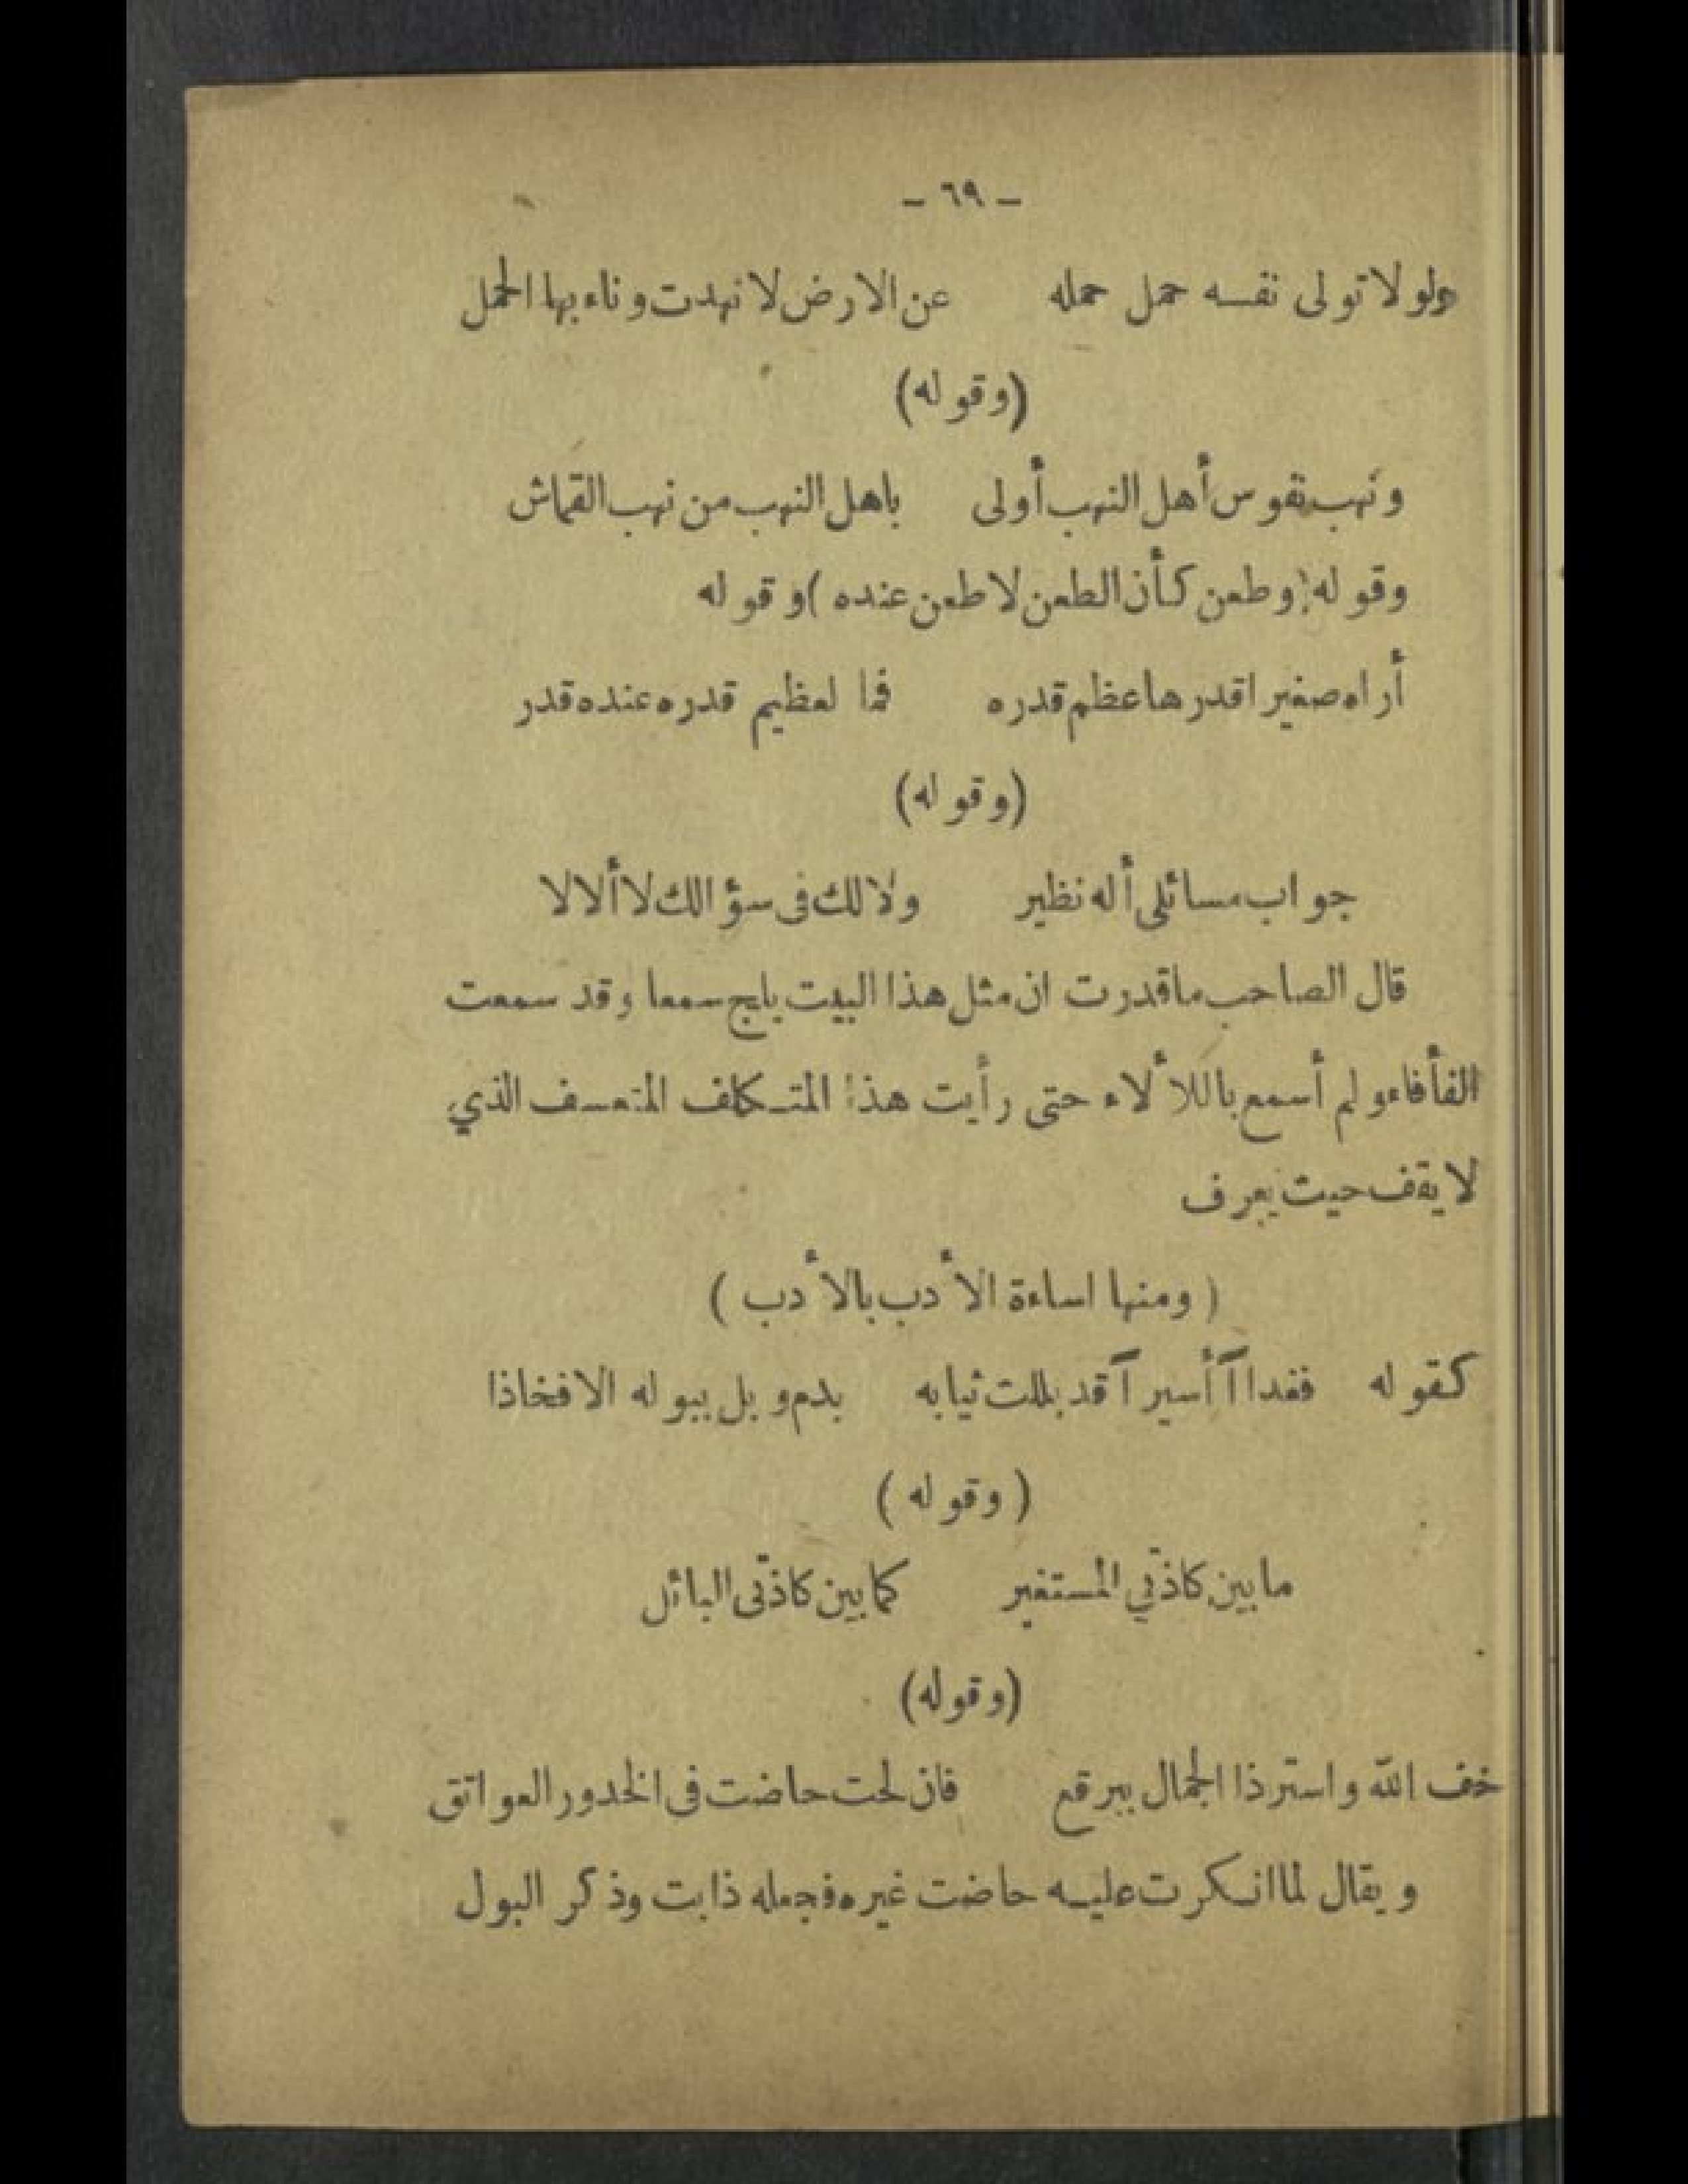 – ٦٩ –
ولولا تولى نفسه حمل حمله عن الارض لانهدت وناء بها الحمل
(وقوله)
ونهب نفوس أهل النهب أولى باهل النهب من نهب القماش
وقوله (وطعن كأن الطعن لا طعن عنده) وقوله
أراه صغيرا قدرها عظم قدره فما لعظيم قدره عنده قدر
(وقوله)
جواب مسائلى أله نظير ولا لك فى سؤالك لا ألا لا
قال الصاحب ما قدرت ان مثل هذا البيت يلج سمعا وقد سمعت
الفأفاء ولم أسمع باللألاء حتى رأيت هذا المتكلف المتعسف الذي
لا يقف حيث يعرف
( ومنها اساءة الأدب بالأدب )
كقوله فغدا آأسيرآ قد بللت ثيابه بدم و بل ببوله الافخاذا
( وقوله )
ما بين كاذتي المستغير كما بين كاذتى البائل
(وقوله)
خف الله واستر ذا الجمال ببرقع فان لحت حاضت فى الخدور العواتق
ويقال لما انكرت عليه حاضت غيره فجعله ذابت وذكر البول